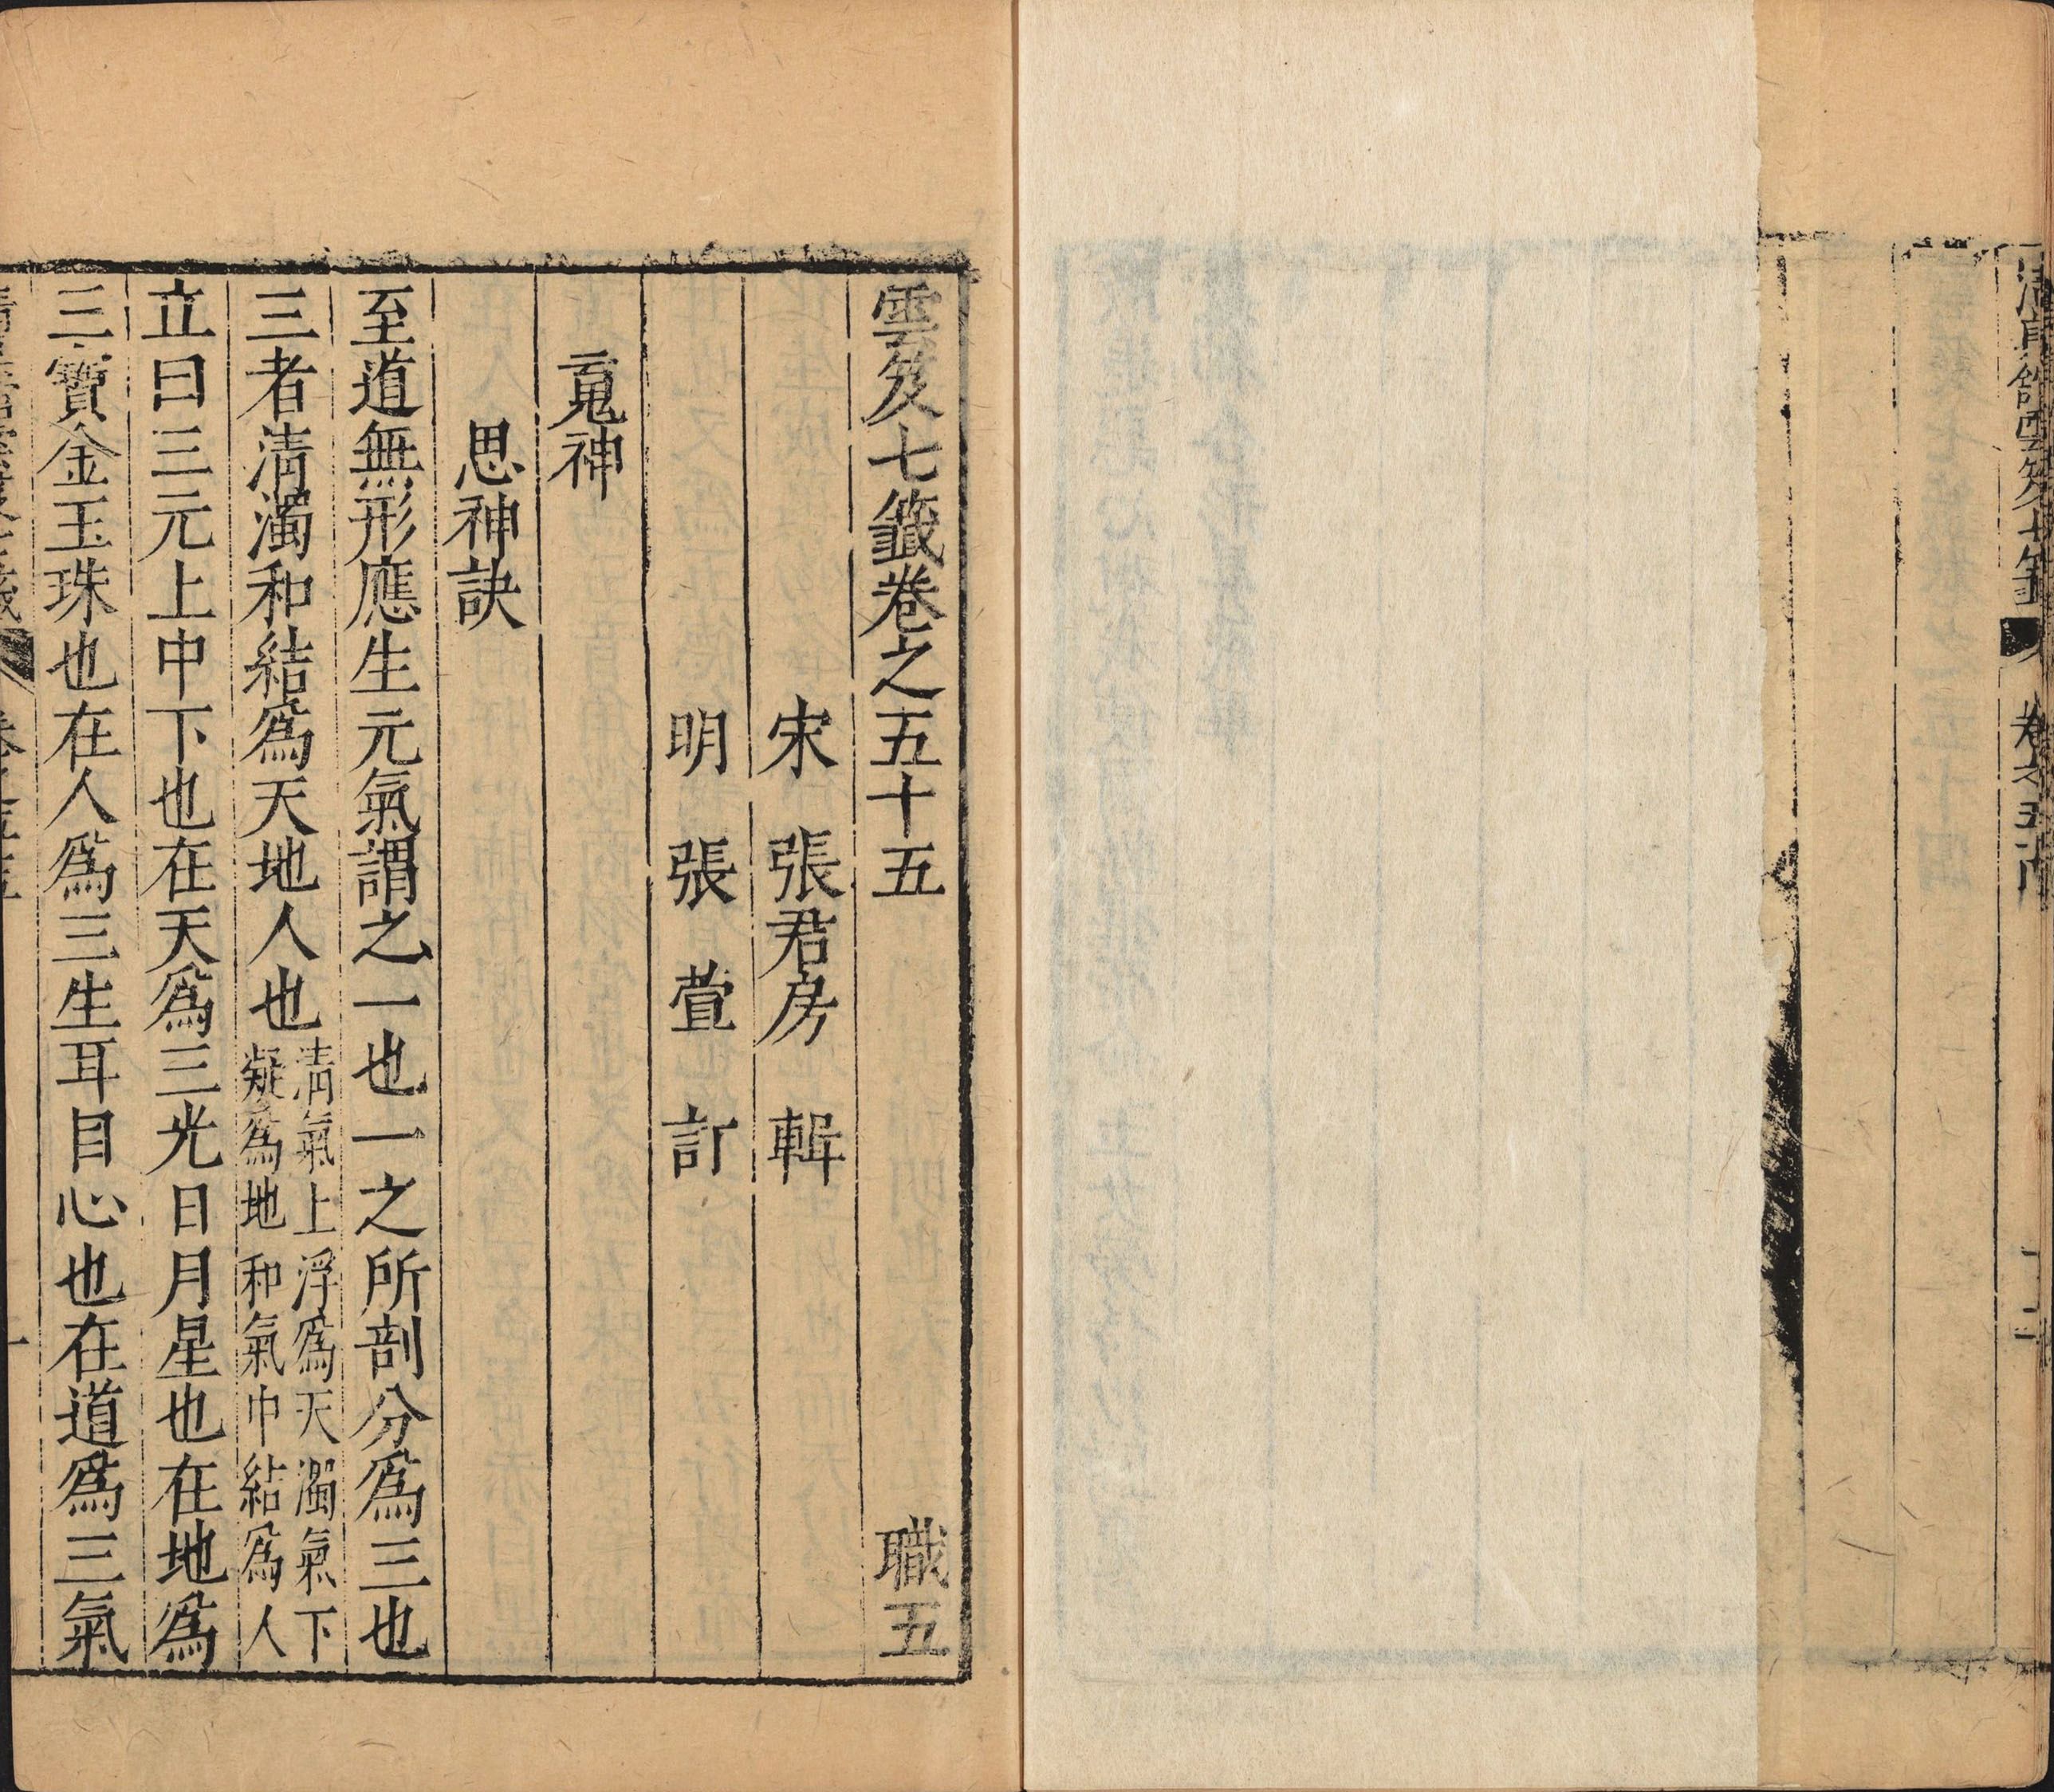 清真館雲笈七籤 卷之五十四 十二
雲笈七籤卷之五十五 職五
宋 張君房 輯
明 張萱 訂
䰟神
思神訣
至道無形應生元氣謂之一也一之所剖分爲三也
三者清濁和結爲天地人也清氣上浮爲天濁氣下
凝爲地和氣中結爲人
立曰三元上中下也在天爲三光日月星也在地爲
三寶金玉珠也在人爲三生耳目心也在道爲三氣